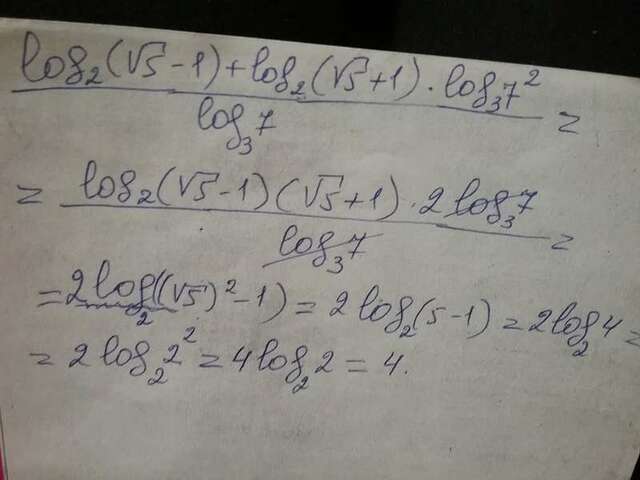 log₂(√5-1)+log₂(√5+1)·log₃7²
log₃7 =
= log₂(√5-1)(√5+1)·2log₃7
log₃7 =
=2log₂((√5)²-1)=2log₂(5-1)=2log₂4=
=2log₂2²=4log₂2=4.